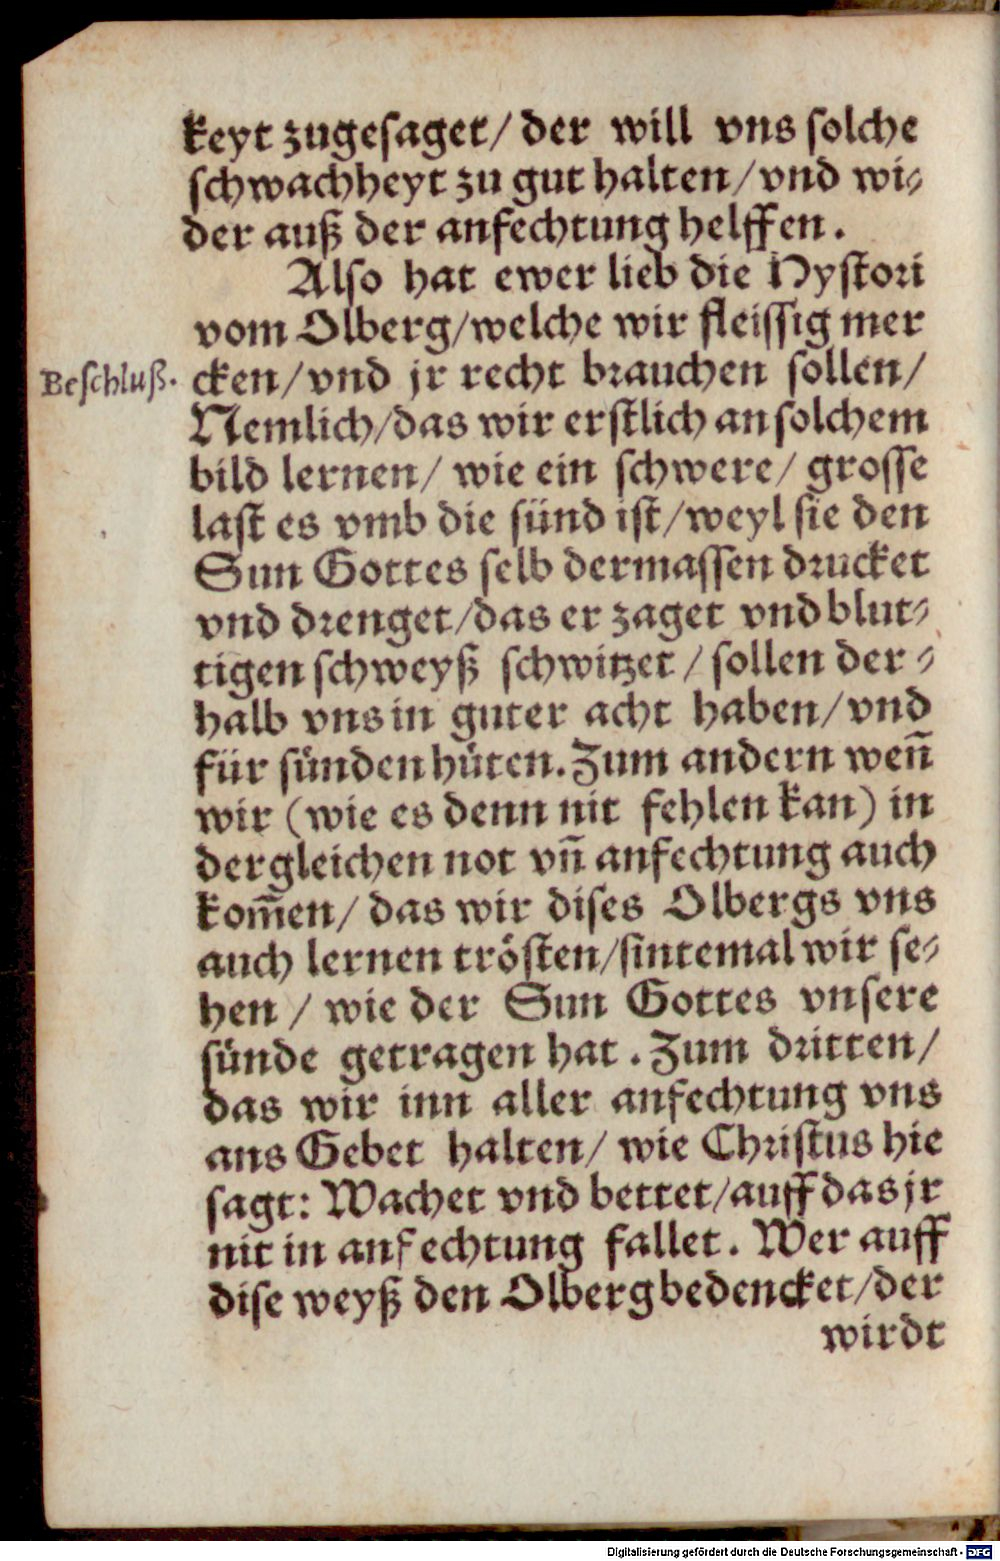 keyt zugesaget/ der will vns solche
schwachheyt zu gut halten/vnd wi⸗
der auß der anfechtung helffen.
Also hat ewer lieb die Hystori
vom Olberg/welche wir fleissig mer
Beschluß.
cken/vnd jr recht brauchen sollen/
Nemlich/das wir erstlich an solchem
bild lernen/ wie ein schwere/ grosse
last es vmb die sünd ist/weyl sie den
Sun Gottes selb dermassen drucket
vnd drenget/das er zaget vnd blut⸗
tigen schweyß schwitzet/ sollen der⸗
halb vns in guter acht haben/vnd
für sünden hüten. Zum andern weñ
wir (wie es denn nit fehlen kan) in
dergleichen not vñ anfechtung auch
kom̃en/ das wir dises Olbergs vns
auch lernen trösten/sintemal wir se⸗
hen / wie der Sun Gottes vnsere
sünde getragen hat. Zum dritten/
das wir inn aller anfechtung vns
ans Gebet halten/ wie Christus hie
sagt: Wachet vnd bettet/auff das jr
nit in anfechtung fallet. Wer auff
dise weyß den Olberg bedencket/der
wirdt
Digitalisierung gefördert durch die Deutsche Forschungsgemeinschaft - DFG